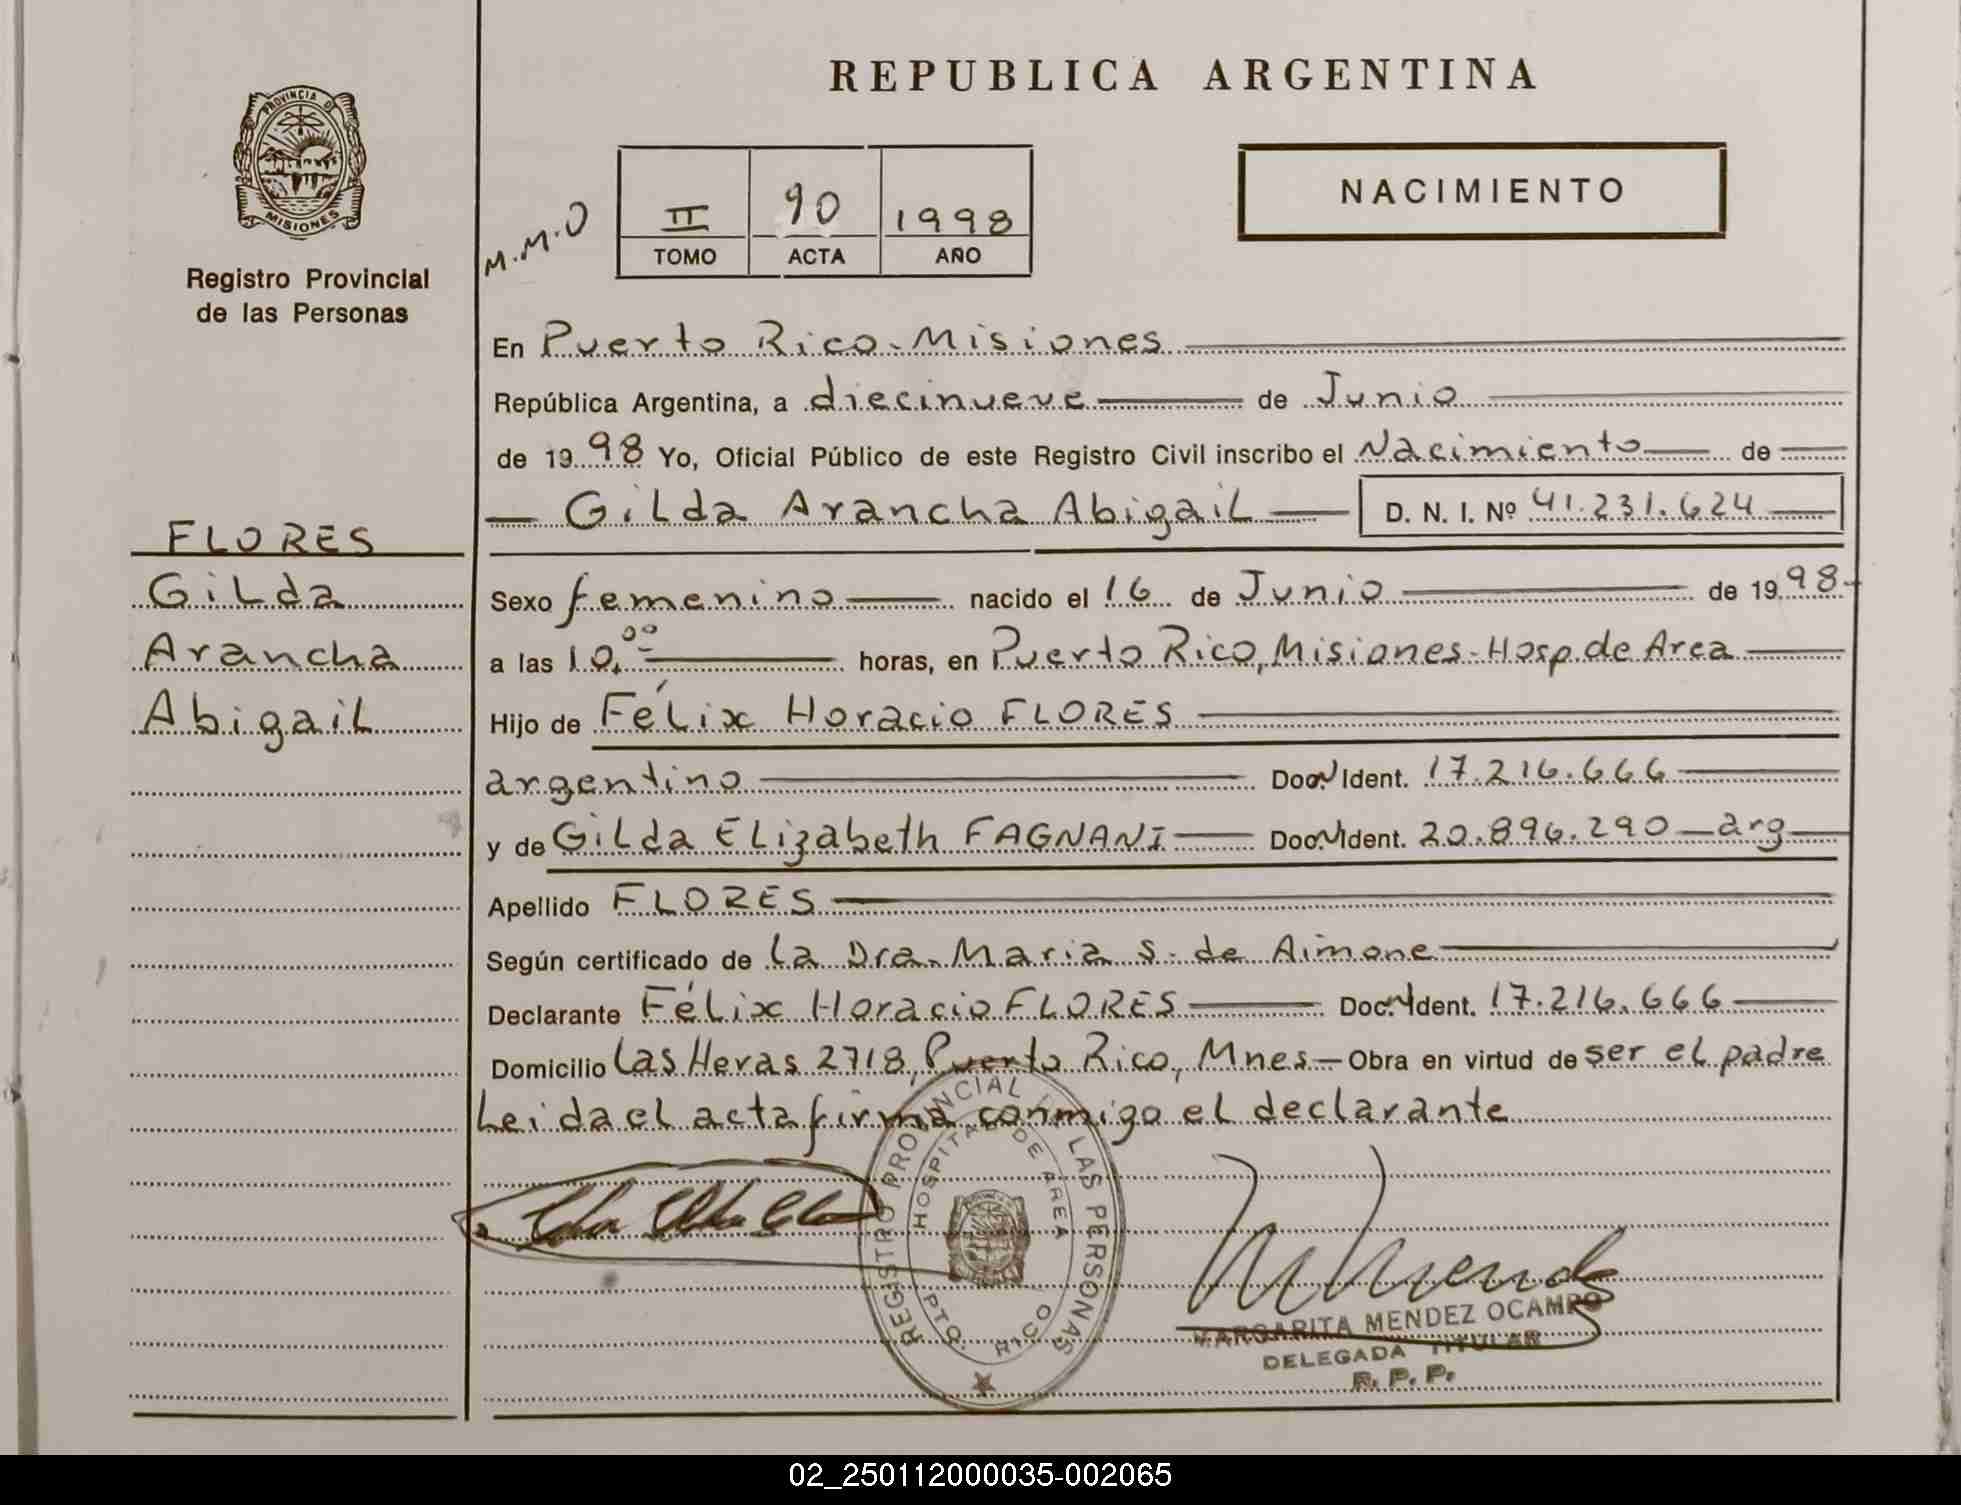 REPUBLICA ARGENTINA
PROVINCIA D
MISIONES
Registro Provincial
de las Personas
M.M.O
II 90 1998
TOMO ACTA AÑO
NACIMIENTO
En Puerto Rico-Misiones
República Argentina, a diecinueve de Junio
de 1998 Yo, Oficial Público de este Registro Civil inscribo el Nacimiento de
Gilda Arancha Abigail D. N. I. Nº 41.231.624
FLORES
Gilda
Arancha
Abigail
Sexo femenino nacido el 16 de Junio de 1998
a las 10,00 horas, en Puerto Rico, Misiones-Hosp. de Area
Hijo de Félix Horacio FLORES
argentino Doc. Ident. 17.216.666
y de Gilda Elizabeth FAGNANI Doc. Ident. 20.896.290 arg
Apellido FLORES
Según certificado de la Dra. Maria S. de Aimone
Declarante Félix Horacio FLORES Doc. Ident. 17.216.666
Domicilio Las Heras 2718, Puerto Rico, Mnes - Obra en virtud de ser el padre
Leida el acta firma conmigo el declarante
REGISTRO PROVINCIAL LAS PERSONAS
HOSPITAL DE AREA
PTO. RICO
MARGARITA MENDEZ OCAMPO
DELEGADA TITULAR
R. P. P.
02_250112000035-002065